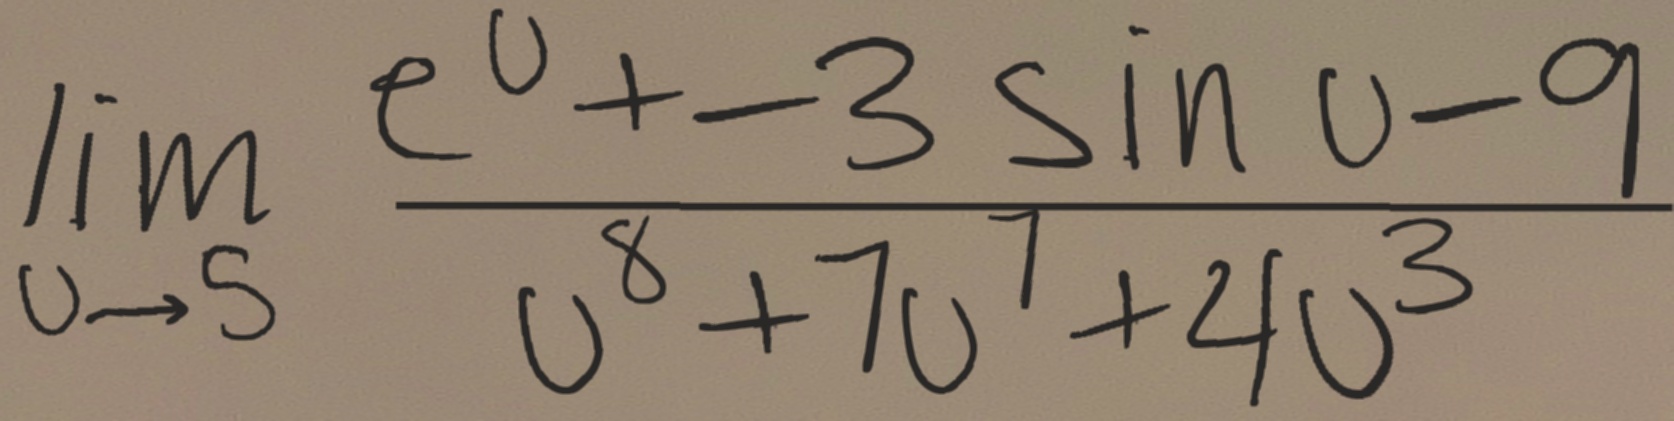 \lim_{u \to 5} \frac{e^u + -3 \sin u - 9}{u^8 + 7u^7 + 4u^3}